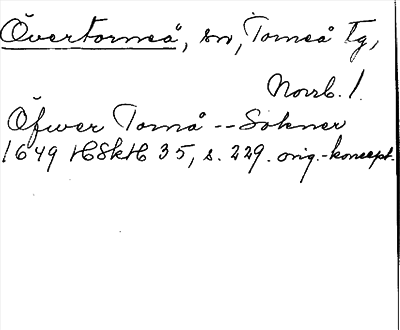 Övertorneå, sn, Torneå tg,
Norrb. l.
Öfwer Tornå -- Sokner
1649 HSkH 35, s. 229. orig.-koncept.